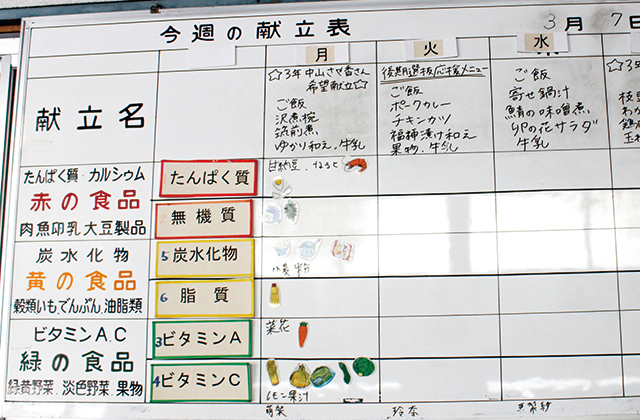 今週の献立表
3月 7日
月
火
水
献立名
☆3年 中山させ香さん
希望献立☆
ご飯
沢煮椀
筑前煮
ゆかり和え、牛乳
後期選抜応援メニュー
ご飯
ポークカレー
チキンカツ
福神漬け和え
果物、牛乳
ご飯
寄せ鍋汁
鯖の味噌煮
卯の花サラダ
牛乳
☆3年
たんぱく質・カルシゥム
赤の食品
肉魚卵乳大豆製品
たんぱく質
甘納豆、
無機質
炭水化物
黄の食品
穀類いも、でんぷん、油脂類
5 炭水化物
6 脂質
ビタミンA.C
緑の食品
緑黄野菜、淡色野菜、果物
3 ビタミンA
菜花
4 ビタミンC
レモン果汁
萌笑
玲奈